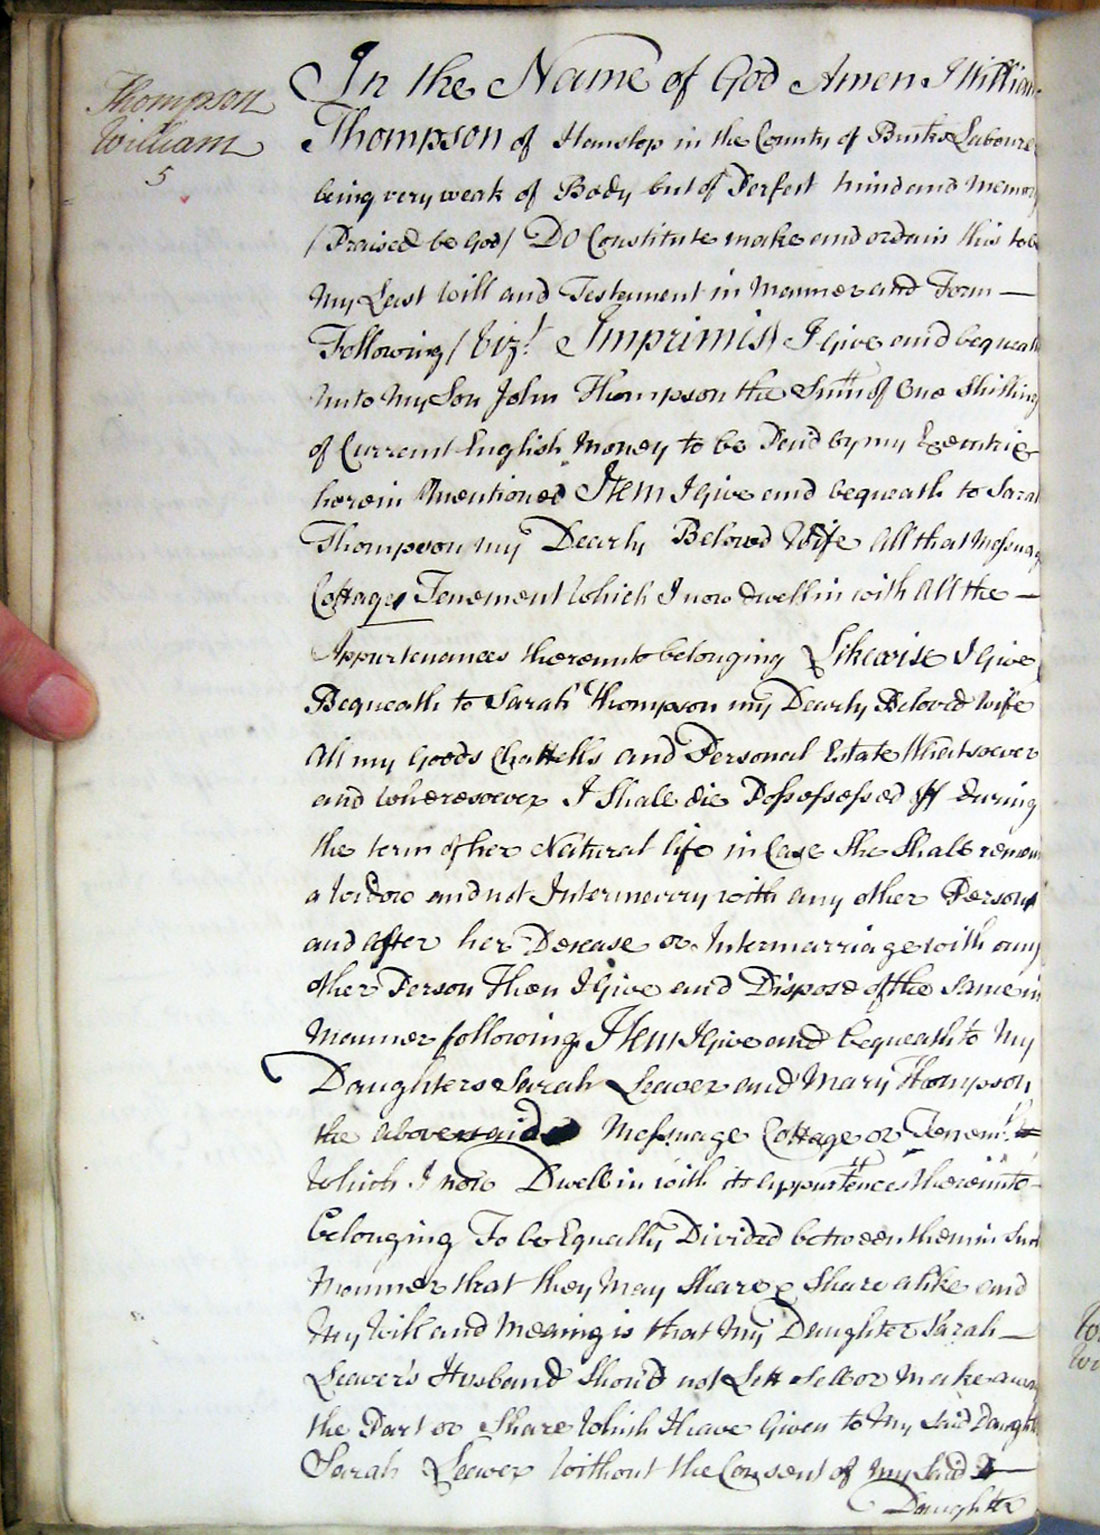 Thompson
William
5
In the Name of God Amen I William
Thompson of Hanslop in the County of Bucks Laboure
being very weak of Body but of Perfect mind and Memory
/Praised be God/ DO Constitute make and ordain this to be
My Last Will and Testament in Manner and Form —
Following /Vizt. Imprimis I Give and bequeath
unto My Son John Thompson the Sum of One Shilling
of Current English Money to be Paid by my Executrix
herein Mentioned Item I Give and bequeath to Sarah
Thompson my Dearly Beloved Wife All that Messuage
Cottage Tenement Which I now dwell in with All the —
Appurtenances thereunto belonging Likewise I Give
Bequeath to Sarah Thompson my Dearly Beloved Wife
All my Goods Chattells and Personal Estate Whatsoever
and Wheresoever I Shall die Possessed of during
the term of her Natural life in Case She Shall remain
a Widow and not Intermarry with any other Person
and After her Decease or Intermarriage with any
other Person Then I Give and Dispose of the Same in
Manner following Item I Give and bequeath to My
Daughters Sarah Leaver and Mary Thompson
the abovesaid Messuage Cottage or Tenemt.
Which I now Dwell in with its Appurtences thereunto
belonging To be Equally Divided between them in Such
Manner that they May Share & Share alike and
My Will and Meaing is that My Daughter Sarah —
Leaver's Husband Shou'd not Lett Sell or Make away
the Part or Share Which I have Given to My Said Daughter
Sarah Leaver Without the Consent of my Said —
Daughter